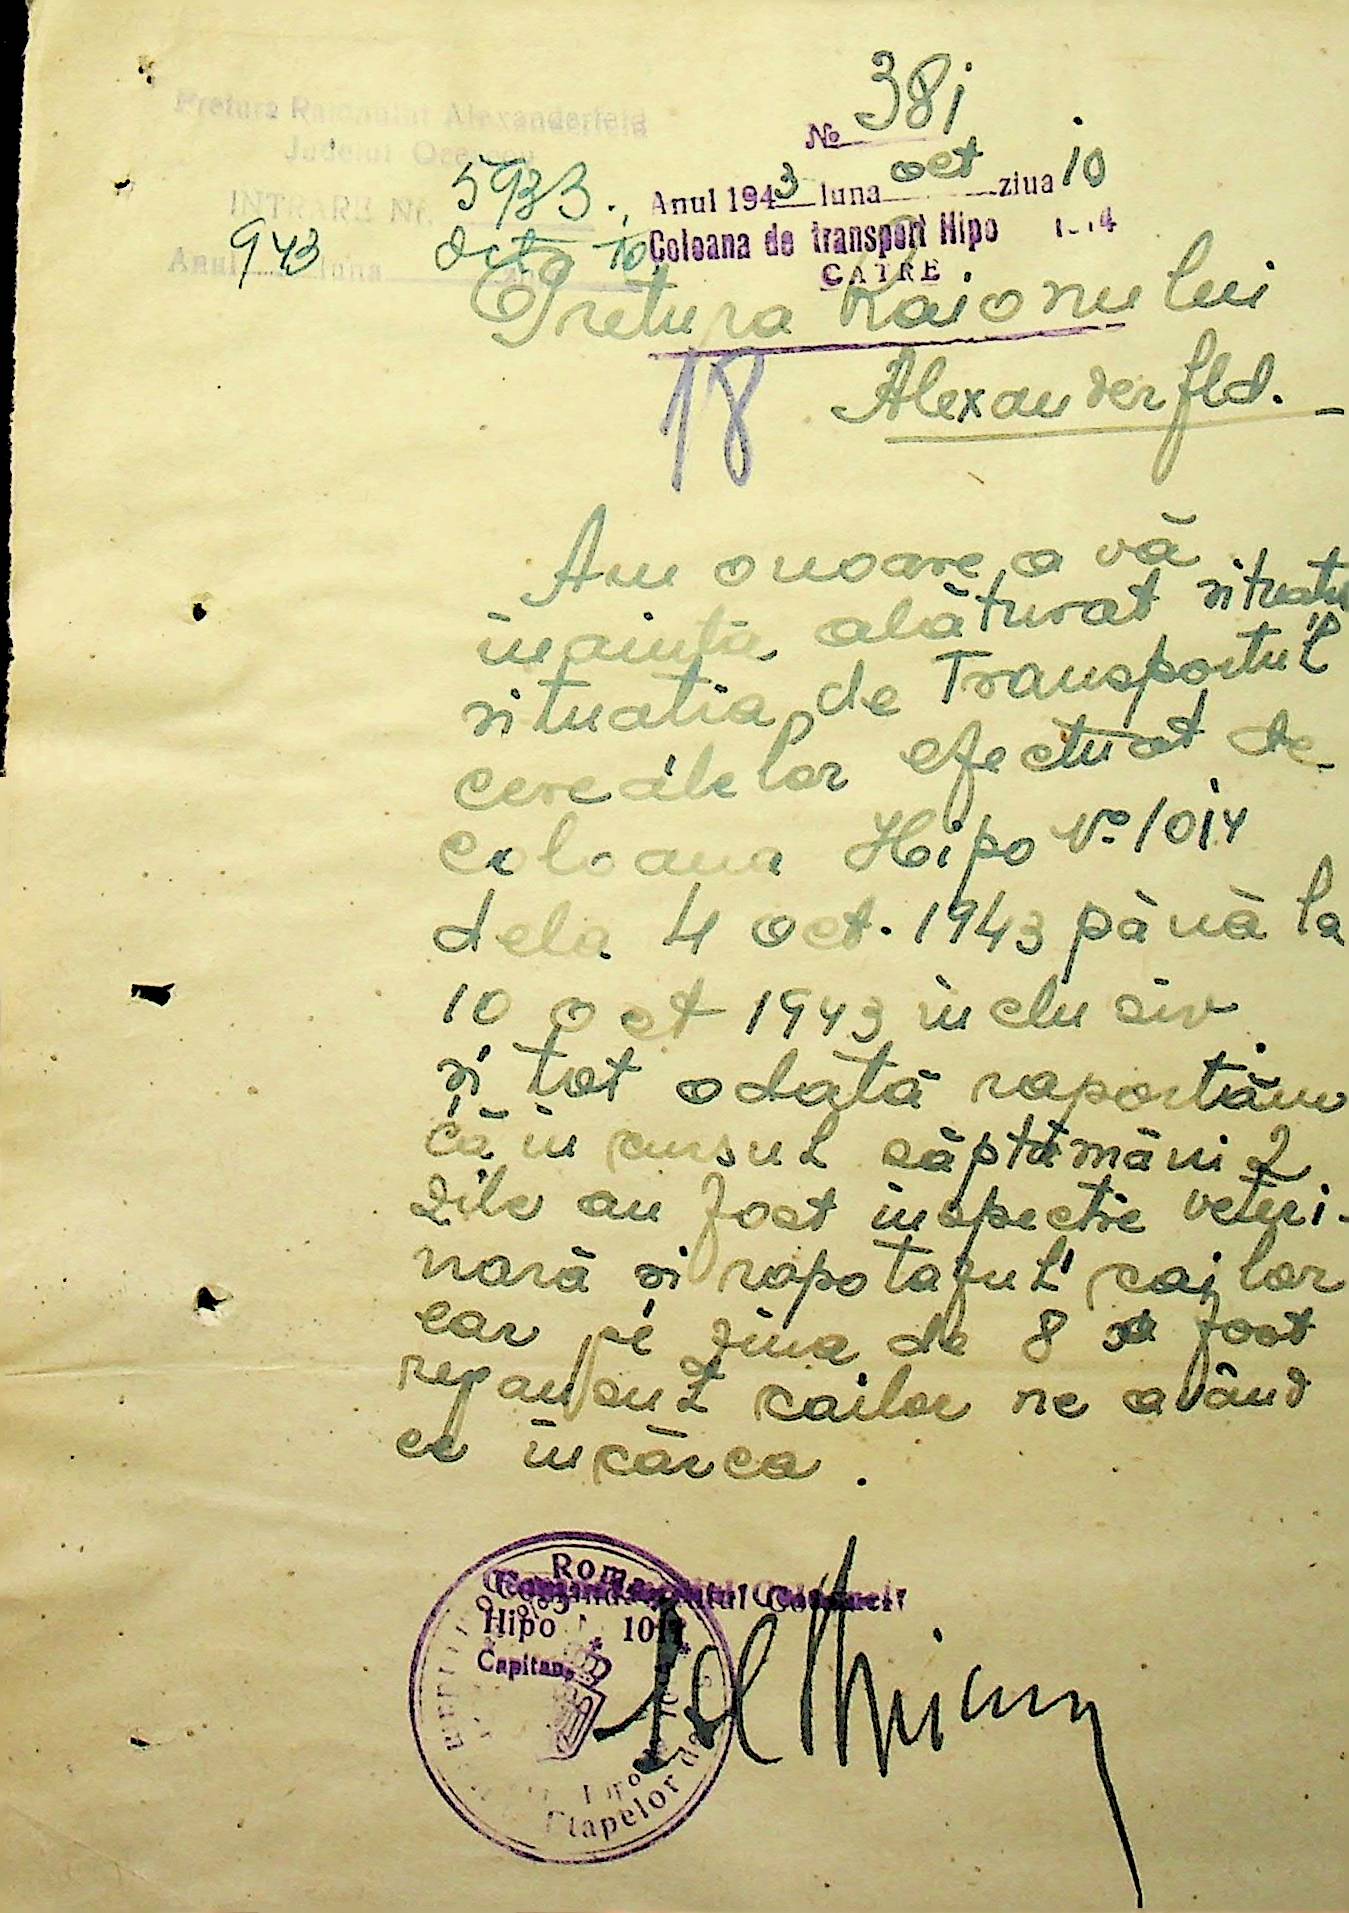 Pretura Raionului Alexanderfeld
Judetul Oceacov
INTRARE Nr. 5933.
Anul 943 luna Oct ziua 10
№ 381
Anul 1943 luna oct ziua 10
Coloana de transport Hipo 1014
CATRE
Pretura Raionului
Alexanderfld.
18
Am onoare a vă
înainta alăturat situatia
situatia de Transportul
cerealelor efectuat de
coloana Hipo No 1014
dela 4 oct. 1943 până la
10 oct 1943 inclusiv
si tot odată raportăm
că in cursul săptămâni 2
zile au fost inspectie veteri-
nară si rapotazul cailor
ear pe ziua de 8 a fost
repausul cailor ne având
ce încărca.
Romania
Comandantul Coloanei
Hipo 1014
Capitan,
Etapelor de